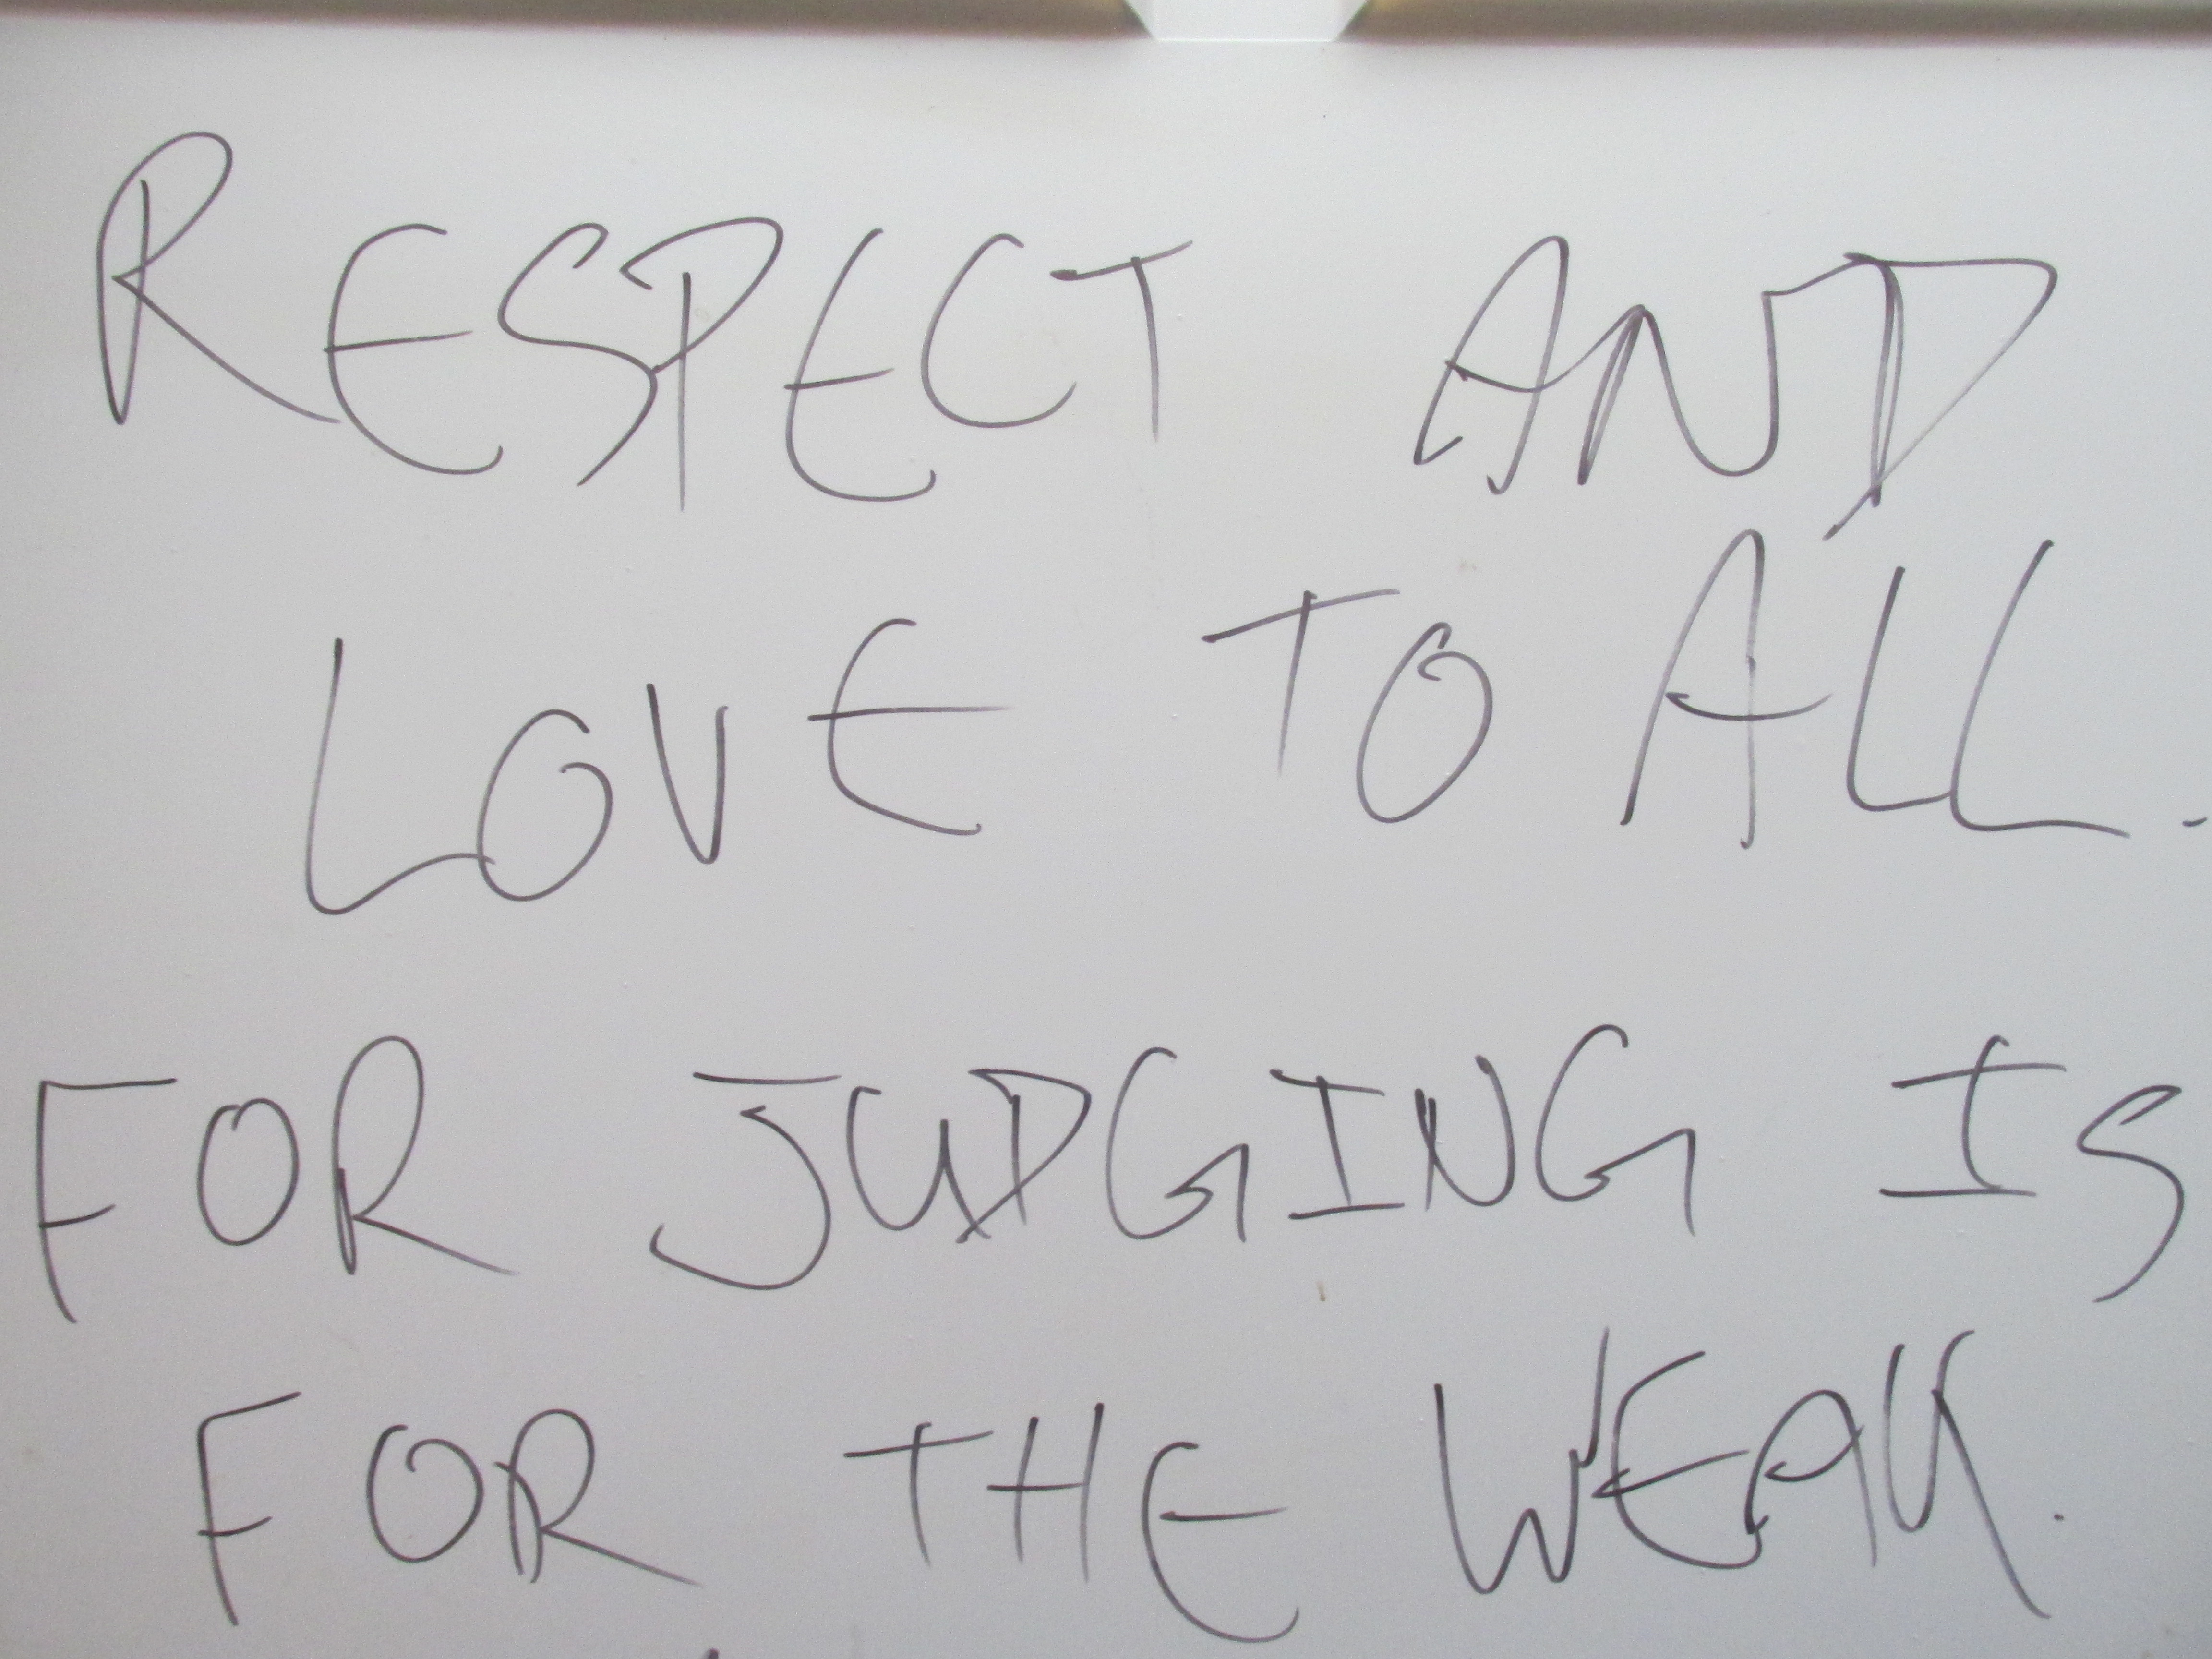 RESPECT AND
LOVE TO ALL.
FOR JUDGING IS
FOR THE WEAK.